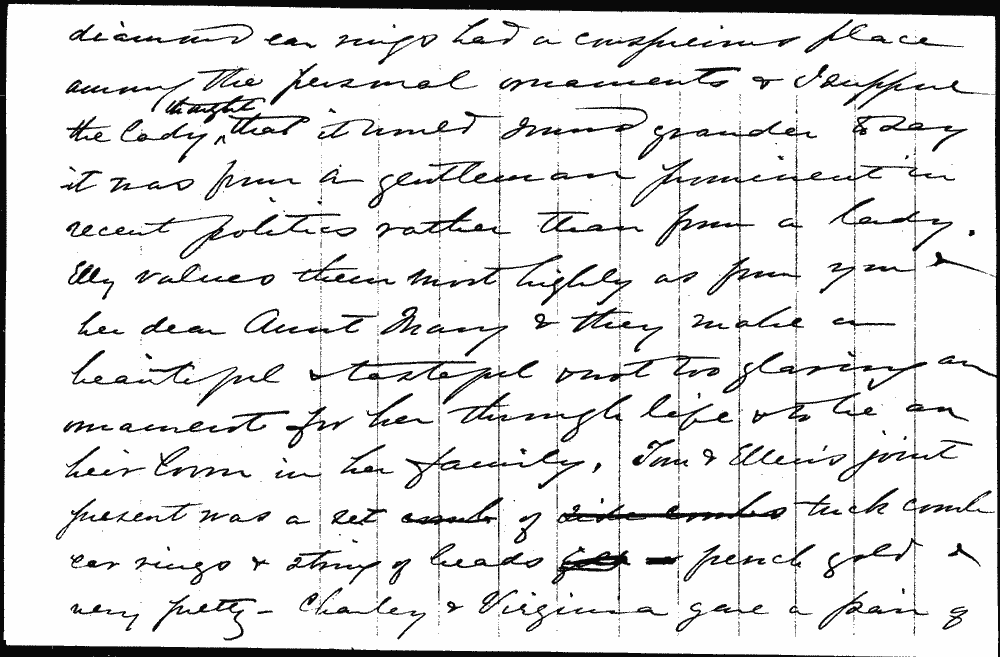 diamond ear rings had a conspicuous place
among the personal ornaments & I suppose
thought
the lady, that it would sound grander to say
it was from a gentleman prominent in
recent politics rather than from a lady.
Elly values them most highly as from you &
her dear Aunt Mary & they make a
beautiful & tasteful & not too glaring an
ornament for her through life & to be an
heir loom in her family. Tom & Ellen's joint
present was a set comb of side combs tuck comb
ear rings & string of beads french gold &
very pretty - Charley & Virginia gave a pair of